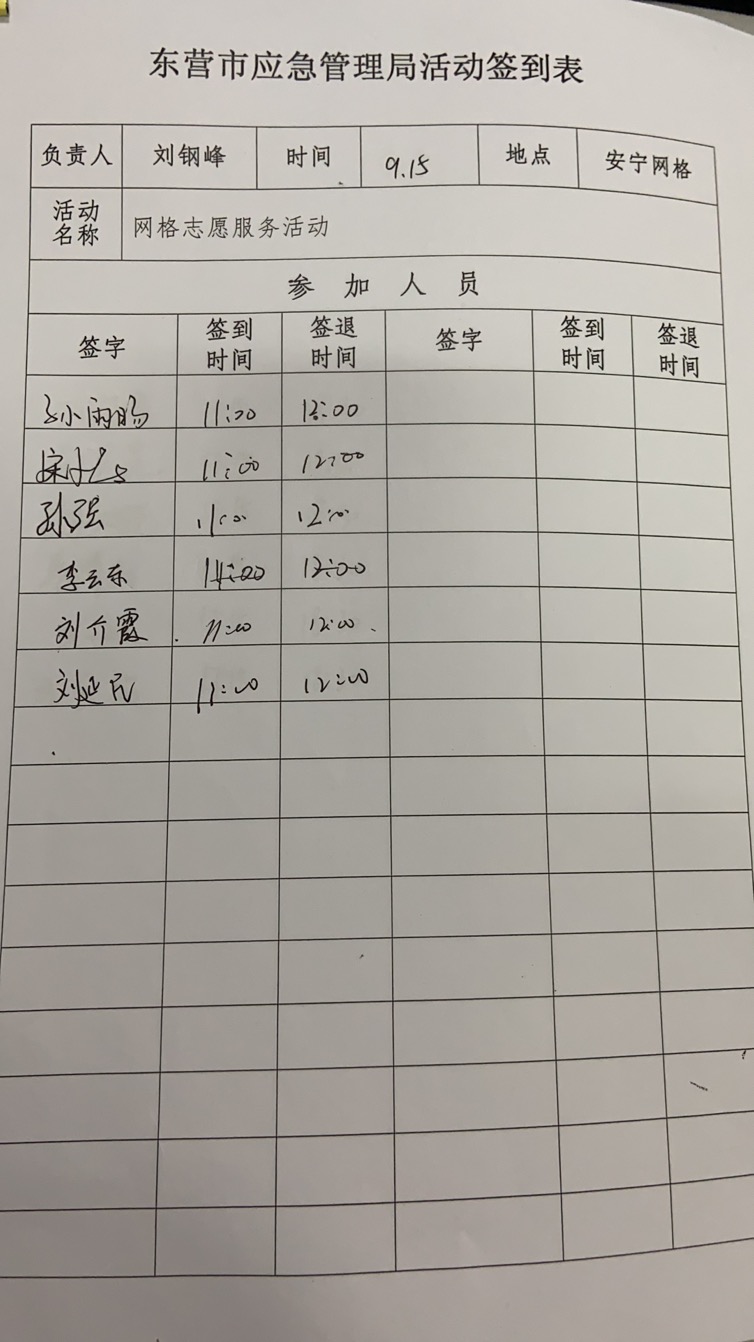 东营市应急管理局活动签到表
负责人 刘钢峰 时间 9.15 地点 安宁网格
活动名称 网格志愿服务活动
参加人员
签字 签到时间 签退时间 签字 签到时间 签退时间
孙雨旸 11:00 12:00
11:00 12:00
孙强 11:00 12:00
李云东 11:00 12:00
刘介霞 11:00 12:00
刘延民 11:00 12:00